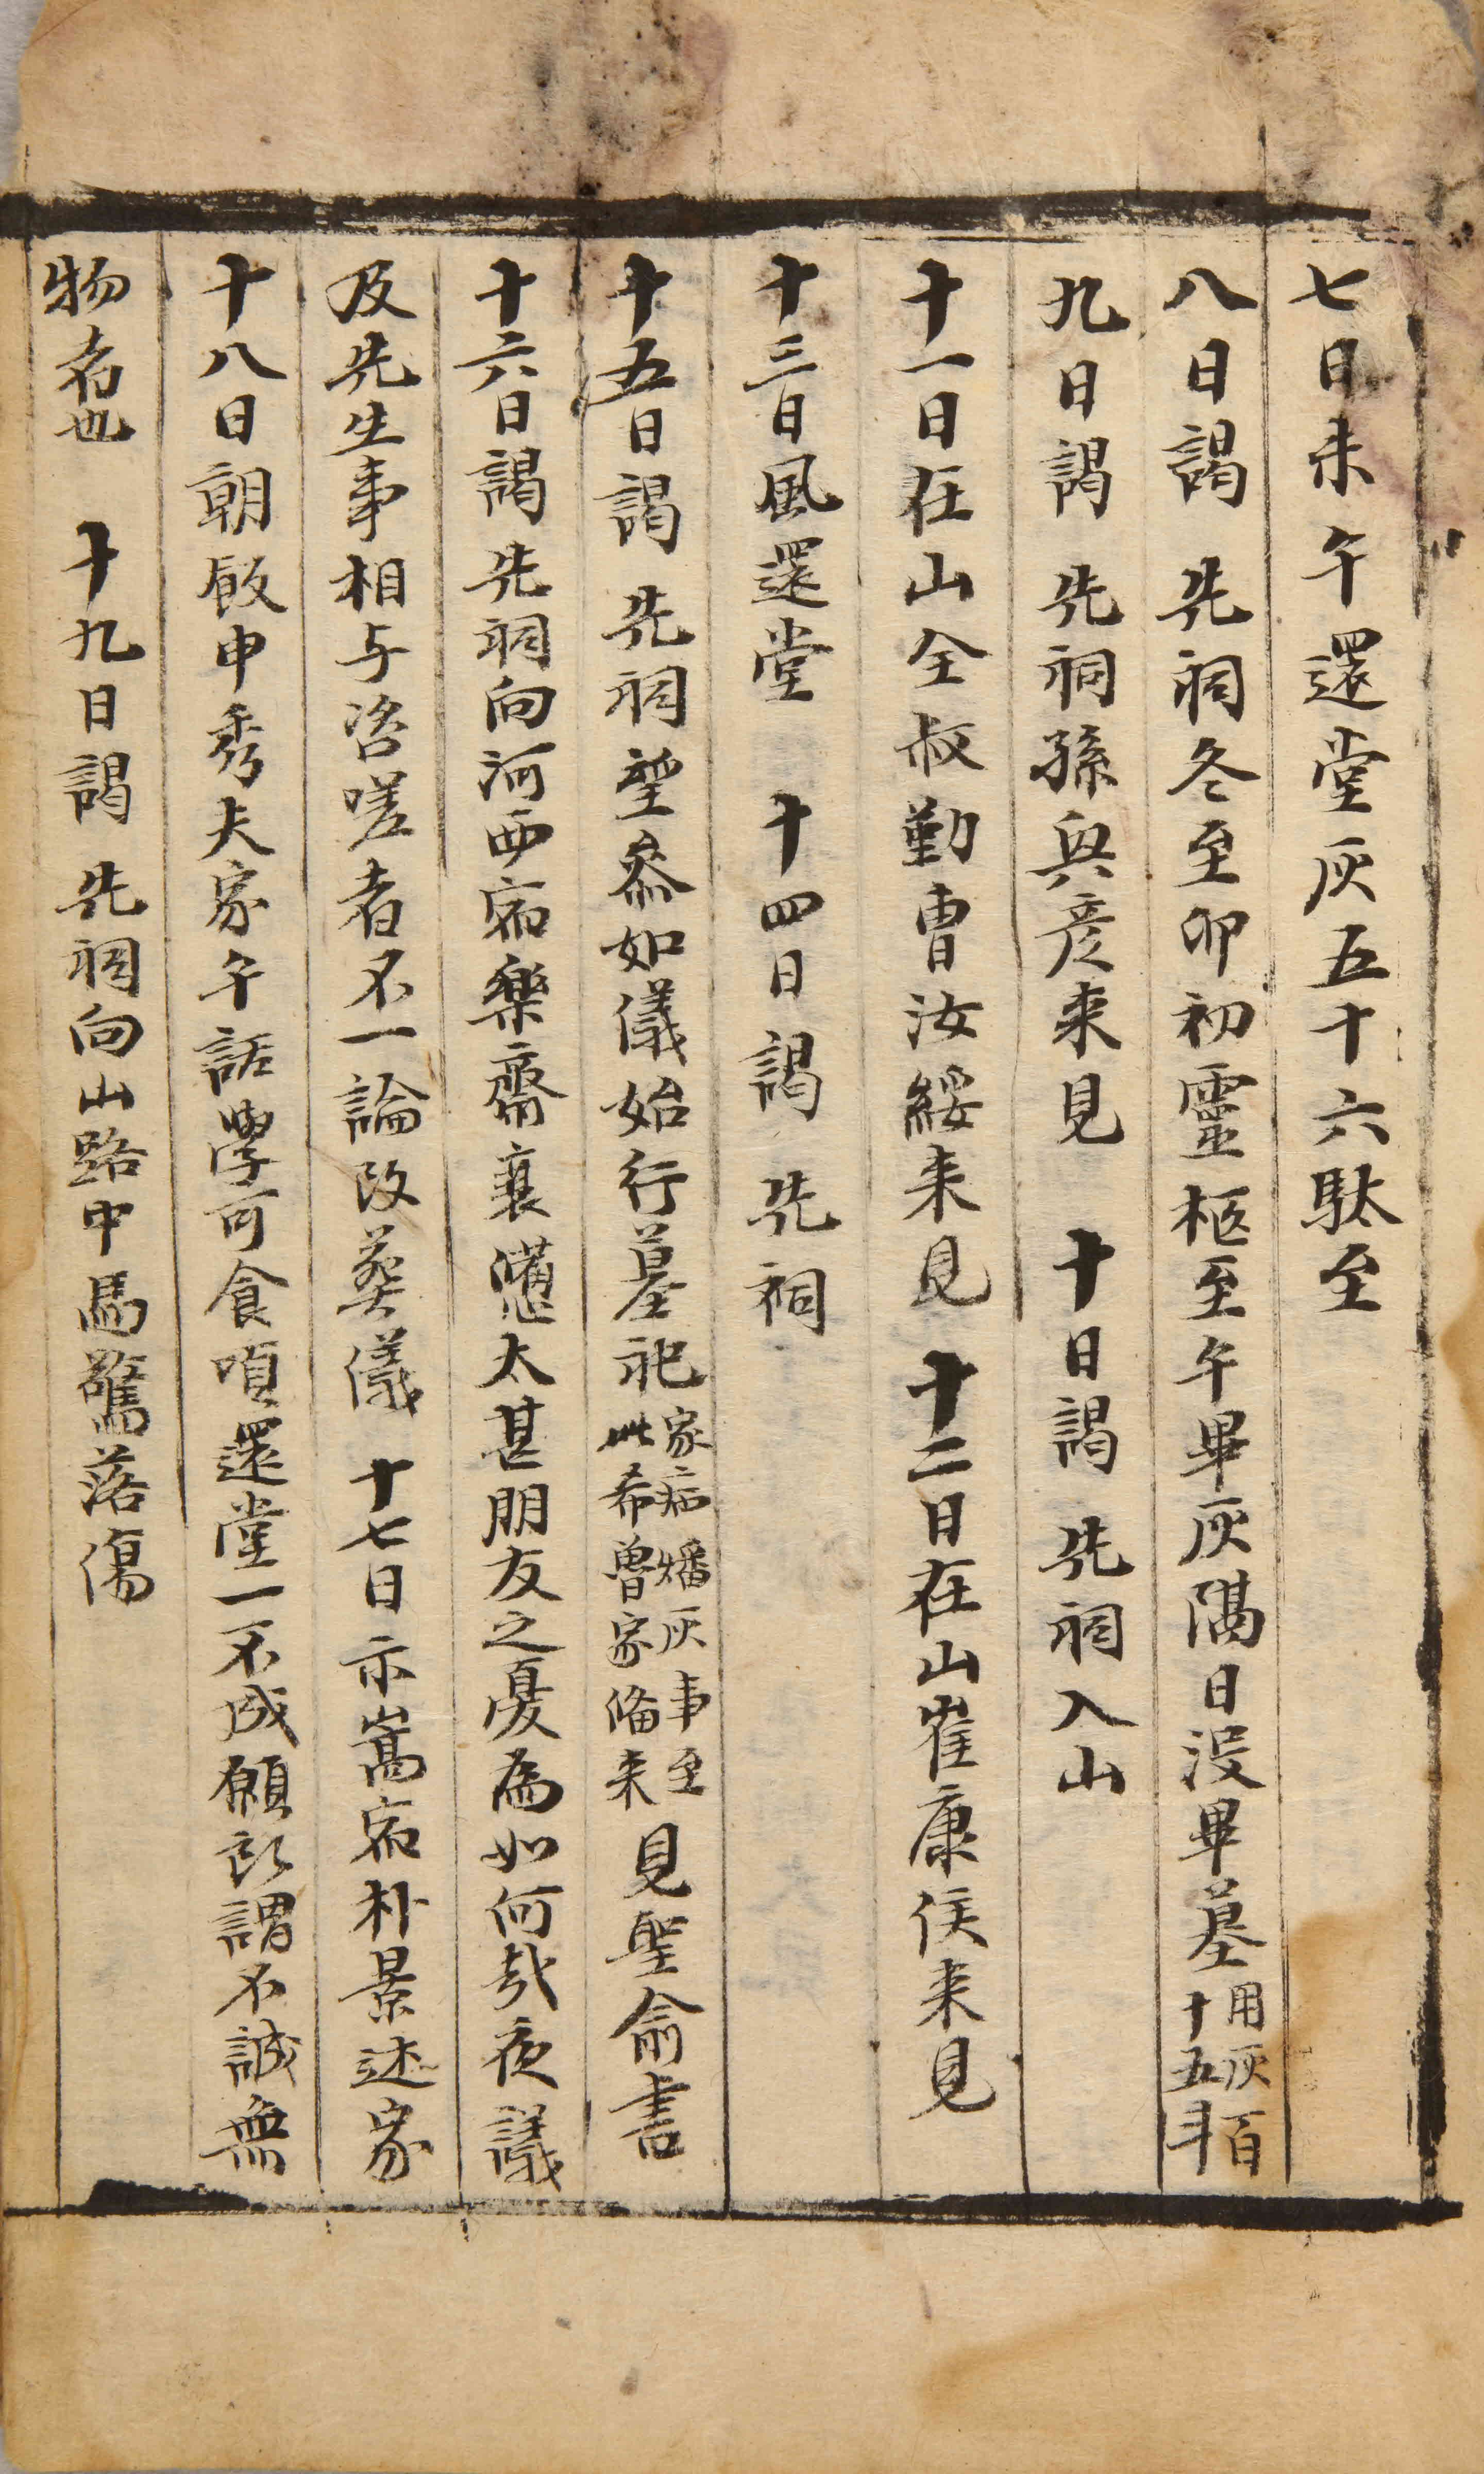 七日未午還堂灰五十六駄至
八日謁 先祠冬至卯初靈柩至午畢灰隔日沒畢墓用灰百十五斗
九日謁 先祠孫興彦来見 十日謁 先祠入山
十一日在山全叔勤曺汝綏来見 十二日在山崔康侯来見
十三日風還堂 十四日謁 先祠
十五日謁 先祠望叅如儀始行墓祀家病燔灰事至此希曽家俻来見聖俞書
十六日謁 先祠向河西宿樂齋衰憊太甚朋友之憂為如何哉夜議
及先生事相与咨嗟者不一論改葬儀 十七日示嵩宿朴景述家
十八日朝飯申秀夫家午話學可食頃還堂一不成願所謂不誠無
物者也 十九日謁 先祠向山路中馬驚落傷